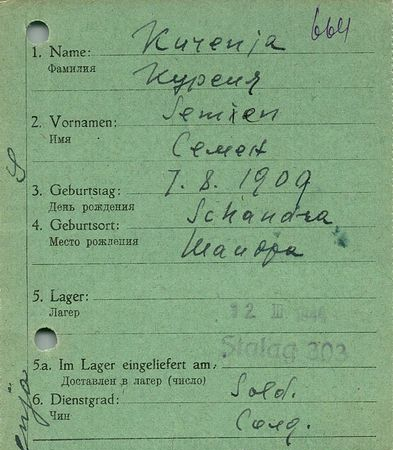 664
1. Name: Kurenja
Фамилия Куреня
2. Vornamen: Semien
Имя Семен
3. Geburtstag: 7. 8. 1909
День рождения
4. Geburtsort: Schandra
Место рождения Шандра
5. Lager:
Лагерь
12 III
Stalag 303
5a. Im Lager eingeliefert am:
Доставлен в лагерь (число)
6. Dienstgrad: Sold.
Чин Солд.